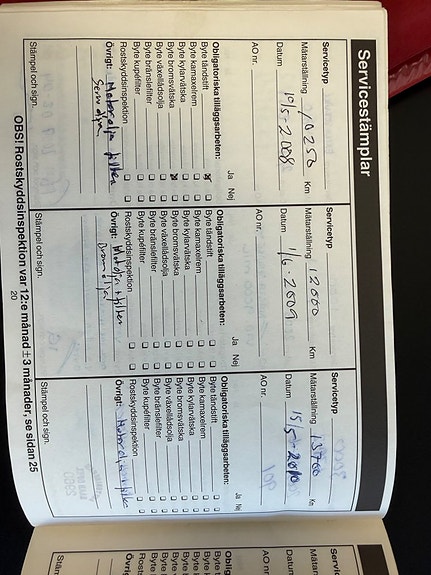 Servicestämplar
Servicetyp
Mätarställning 10250 Km
Datum 10/5-2008
AO nr.
Obligatoriska tilläggsarbeten: Ja Nej
Byte tändstift
Byte kamaxelrem
Byte kylarvätska
Byte bromsvätska
Byte växellådsolja
Byte bränslefilter
Byte kupéfilter
Rostskyddsinspektion
Övrigt: Motorolja + filter
Servo olja
Stämpel och sign.
Servicetyp
Mätarställning 12000 Km
Datum 1/6-2009
AO nr.
Obligatoriska tilläggsarbeten: Ja Nej
Byte tändstift
Byte kamaxelrem
Byte kylarvätska
Byte bromsvätska
Byte växellådsolja
Byte bränslefilter
Byte kupéfilter
Rostskyddsinspektion
Övrigt: Motorolja + filter
Stämpel och sign.
Servicetyp
Mätarställning 13700 Km
Datum 15/5-2010
AO nr.
Obligatoriska tilläggsarbeten: Ja Nej
Byte tändstift
Byte kamaxelrem
Byte kylarvätska
Byte bromsvätska
Byte växellådsolja
Byte bränslefilter
Byte kupéfilter
Rostskyddsinspektion
Övrigt: Motorolja + filter
Stämpel och sign.
20
OBS! Rostskyddsinspektion var 12:e månad ± 3 månader, se sidan 25